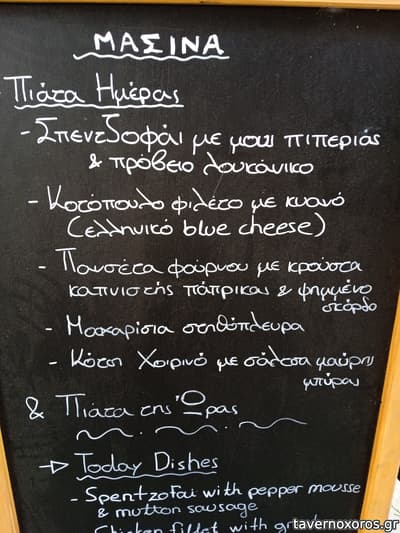 ΜΑΣΙΝΑ
Πιάτα Ημέρας
- Σπεντζοφάι με μους πιπεριάς
& πρόβειο λουκάνικο
- Κοτόπουλο φιλέτο με κυανό
(ελληνικό blue cheese)
- Πανσέτα φούρνου με κρούστα
καπνιστής πάπρικας & ψημμένο
σκόρδο
- Μοσχαρίσια στηθόπλευρα
- Κότσι Χοιρινό με σάλτσα μαύρης
μπύρας
& Πιάτα της Ώρας
→ Today Dishes
- Spentzofai with pepper mousse
& mutton sausage
- Chicken fillet with
tavernoxoros.gr